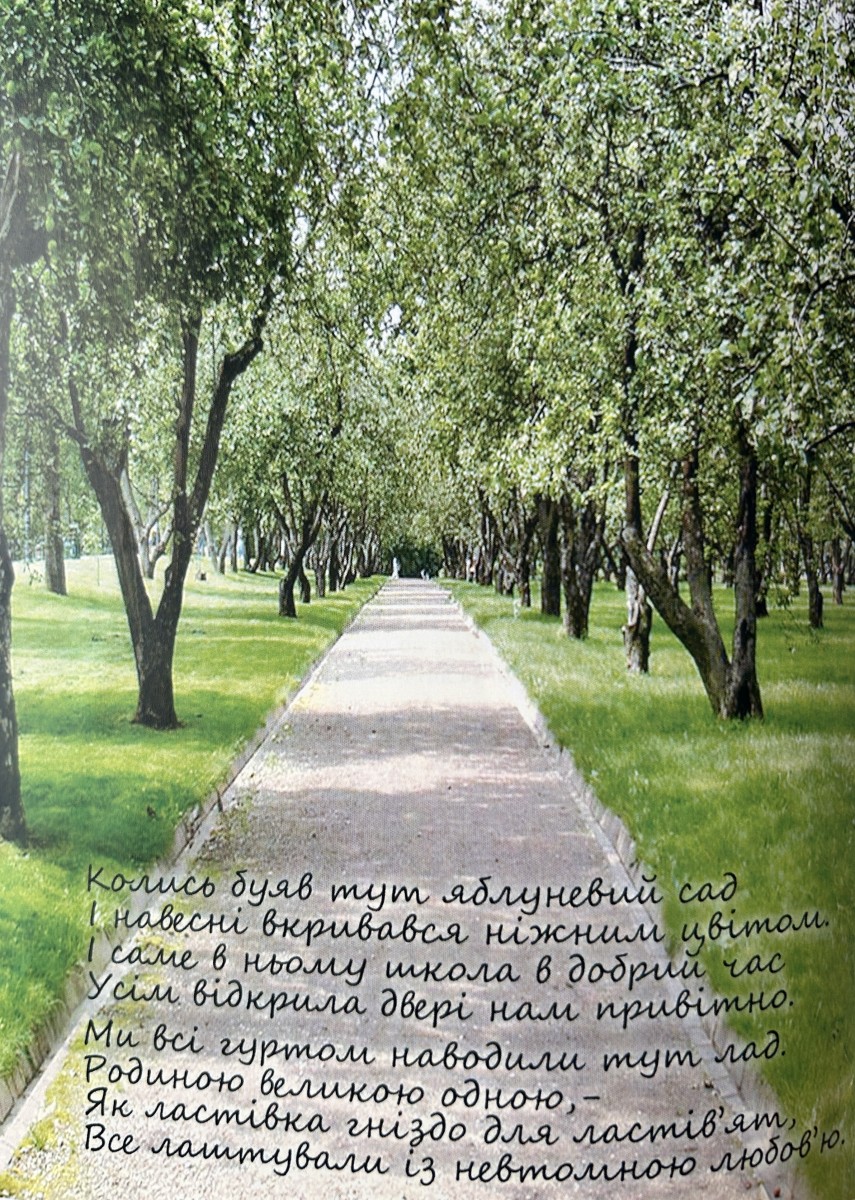 Колись буяв тут яблуневий сад
І навесні вкривався ніжним цвітом.
І саме в ньому школа в добрий час
Усім відкрила двері нам привітно.
Ми всі гуртом наводили тут лад.
Родиною великою одною,–
Як ластівка гніздо для ластів'ят,
Все лаштували із невтомною любов'ю.